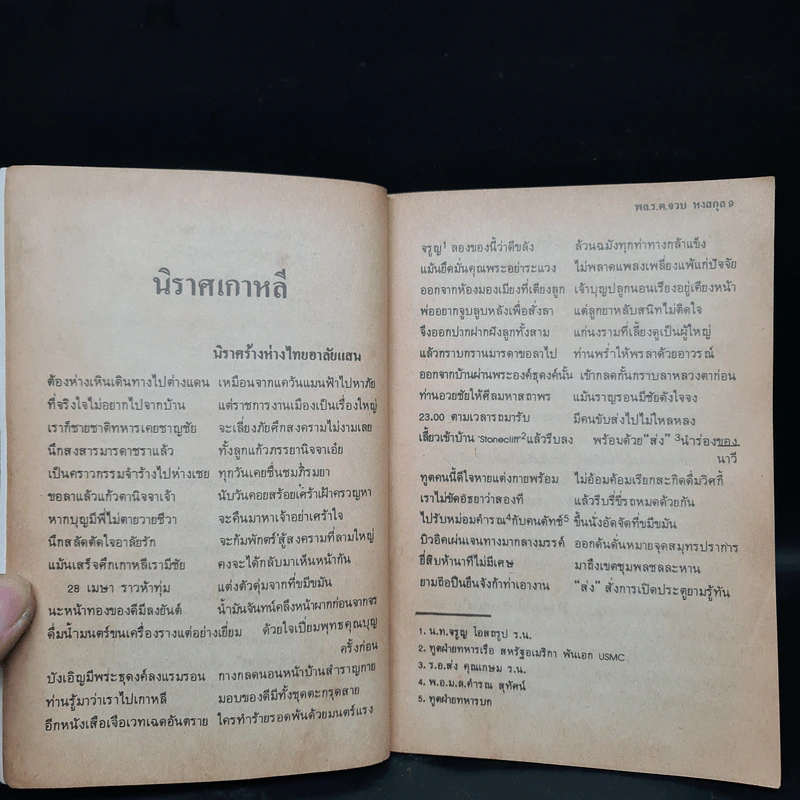 นิราศเกาหลี
นิราศร้างห่างไทยอาลัยแสน
ต้องห่างเหินเดินทางไปต่างแดน เหมือนจากแคว้นแมนฟ้าไปหาภัย
ที่จริงใจไม่อยากไปจากบ้าน แต่ราชการงานเมืองเป็นเรื่องใหญ่
เราก็ชายชาติทหารเคยชาญชัย จะเลี่ยงภัยศึกสงครามไม่งามเลย
นึกสงสารมารดาชราแล้ว ทั้งลูกแก้วภรรยานิจจาเอ๋ย
เป็นคราวกรรมจำร้างไปห่างเชย ทุกวันเคยชื่นชมภิรมยา
ขอลาแล้วแก้วตานิจจาเจ้า นับวันคอยสร้อยเศร้าเฝ้าครวญหา
หากบุญมีพี่ไม่ตายวายชีวา จะคืนมาหาเจ้าอย่าเศร้าใจ
นึกสลัดตัดใจอาลัยรัก จะก้มพักตร์สู้สงครามที่ลามใหญ่
แม้นเสร็จศึกเกาหลีเรามีชัย คงจะได้กลับมาเห็นหน้ากัน
28 เมษา ราวห้าทุ่ม แต่งตัวตุ่มจากที่ขมีขมัน
นะหน้าทองของดีมีลงยันต์ น้ำมันจันทน์คลึงหน้าผากก่อนจากจร
ดื่มน้ำมนตร์ขนเครื่องรางแต่อย่างเยี่ยม ด้วยใจเปี่ยมพุทธคุณบุญ
ครั้งก่อน
บังเอิญมีพระธุดงค์ลงแรมรอน กางกลดนอนหน้าบ้านสำราญกาย
ท่านรู้มาว่าเราไปเกาหลี มอบของดีมีทั้งชุดตะกรุดสาย
อีกหนังเสือเจือเวทเฉดอันตราย ใครทำร้ายรอดพ้นด้วยมนตร์แรง
พล.ร.ต.จวบ หงสกุล 9
จรูญ1 ลองของนี้ว่าดีขลัง ล้วนฉมังทุกท่าทางกล้าแข็ง
แม้นยึดมั่นคุณพระอย่าระแวง ไม่พลาดแพลงเพลี่ยงแพ้แก่ปัจจัย
ออกจากห้องมองเมียงที่เตียงลูก เจ้าบุญปลูกนอนเรียงอยู่เคียงหน้า
พ่ออยากจูบลูบหลังเพื่อสั่งลา แต่ลูกยาหลับสนิทไม่ติดใจ
จึงออกปากฝากฝังลูกทั้งสาม แก่นงรามที่เลี้ยงดูเป็นผู้ใหญ่
แล้วกราบกรานมารดาขอลาไป ท่านพร่ำให้พรลาด้วยอาวรณ์
ออกจากบ้านผ่านพระองค์ธุดงค์นั้น เข้ากลดกั้นกราบลาหลวงตาก่อน
ท่านอวยชัยให้ศีลมหาสถาพร แม้นราญรอนมีชัยดังใจจง
23.00 ตามเวลารถมารับ มีคนขับส่งไปไม่ไหลหลง
เลี้ยวเข้าบ้าน "Stonecliff"2แล้วรีบลง พร้อมด้วย "ส่ง" 3นำร่องของ
นาวี
ทูตคนนี้ดีใจหายแต่งกายพร้อม ไม่อ้อมค้อมเรียกสะกิดดื่มวิศกี้
เราไม่ขัดอัธยาว่าสองที แล้วรีบรี่ขี่รถหมดด้วยกัน
ไปรับหม่อมคำรณ4กับคนดัทช์5 ขึ้นนั่งอัดจัดที่ขมีขมัน
บิวอิคเผ่นเจนทางมากลางมรรค์ ออกดันดั้นหมายจุดสมุทรปราการ
ยี่สิบห้านาทีไม่มีเศษ มาถึงเขตชุมพลชลละหาน
ยามถือปืนยืนจังก้าท่าเอางาน "ส่ง" สั่งการเปิดประตูยามรู้ทัน
1. น.ท.จรูญ โอสถรูป ร.น.
2. ทูตฝ่ายทหารเรือ สหรัฐอเมริกา พันเอก USMC.
3. ร.อ.ส่ง คุณเกษม ร.น.
4. พ.อ.ม.ล.คำรณ สุทัศน์
5. ทูตฝ่ายทหารบก